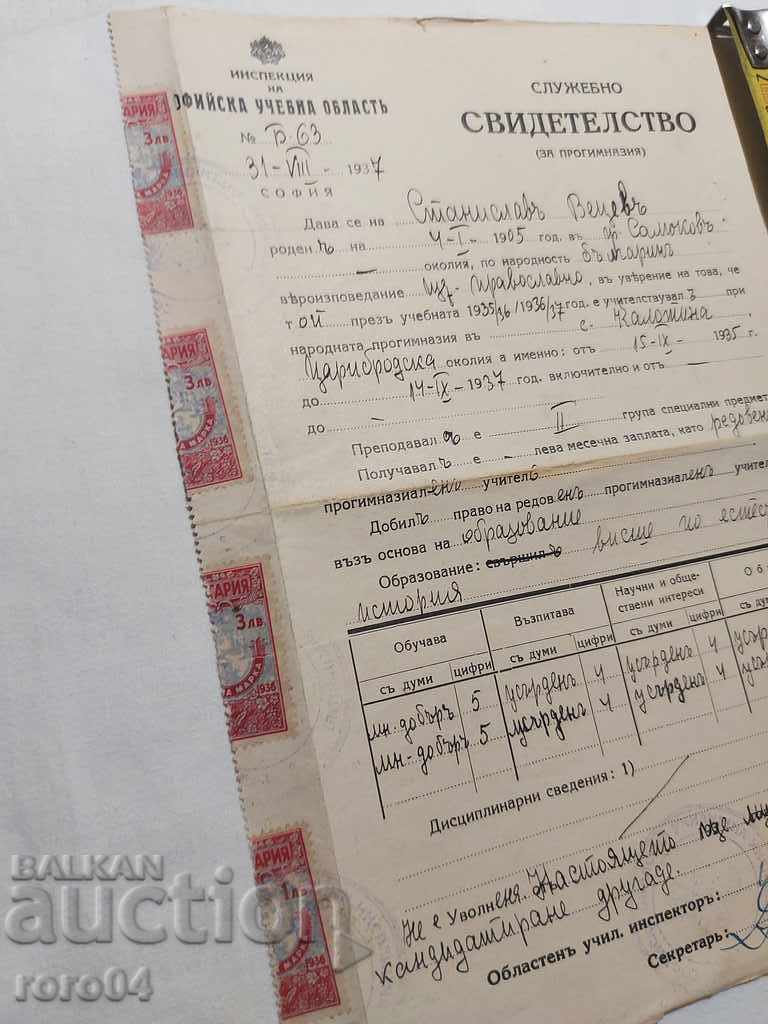 ИНСПЕКЦИЯ
НА
ОФИЙСКА УЧЕБНА ОБЛАСТЬ
№ Б-63
31-VIII- 1937
СОФИЯ
СЛУЖЕБНО
СВИДЕТЕЛСТВО
(ЗА ПРОГИМНАЗИЯ)
Дава се на Станиславъ Вецевъ
роденъ на 4-I- 1905 год. въ гр. Самоковъ
— околия, по народность българинъ
вѣроизповедание изт. православно, въ уверение на това, че
той презъ учебната 1935/36/1936/37 год. е учителствувал при
народната прогимназия въ с. Калотина
Царибродска околия а именно: отъ 15-IX- 1935 г.
до 14-IX-1937 год. включително и отъ
до -
Преподавалъ е II група специални предмет
Получавалъ - лева месечна заплата, като редовенъ
прогимназиаленъ учитель
Добилъ право на редовенъ прогимназиаленъ учител
възъ основа на образование
Образование: свършилъ висше по естес
история
Обучава Възпитава Научни и обще-
ствени интереси О б
съ думи цифри съ думи цифри съ думи цифри съ ду
мн. добъръ 5 усърденъ 4 усърденъ 4 усър
мн. добъръ 5 усърденъ 4 усърденъ 4
Дисциплинарни сведения: 1)
Не е уволненъ. Настоящето ще му
кандидатиране другаде.
Областенъ учил. инспекторъ:
Секретарь:
АРИЯ
3 лв.
1936
АРИЯ
3 лв
МАРКА
1936
ГАРИЯ
3 лв.
МАРКА
1936
АРИЯ
1 лв.
1936
BALKAN
auction
roro04